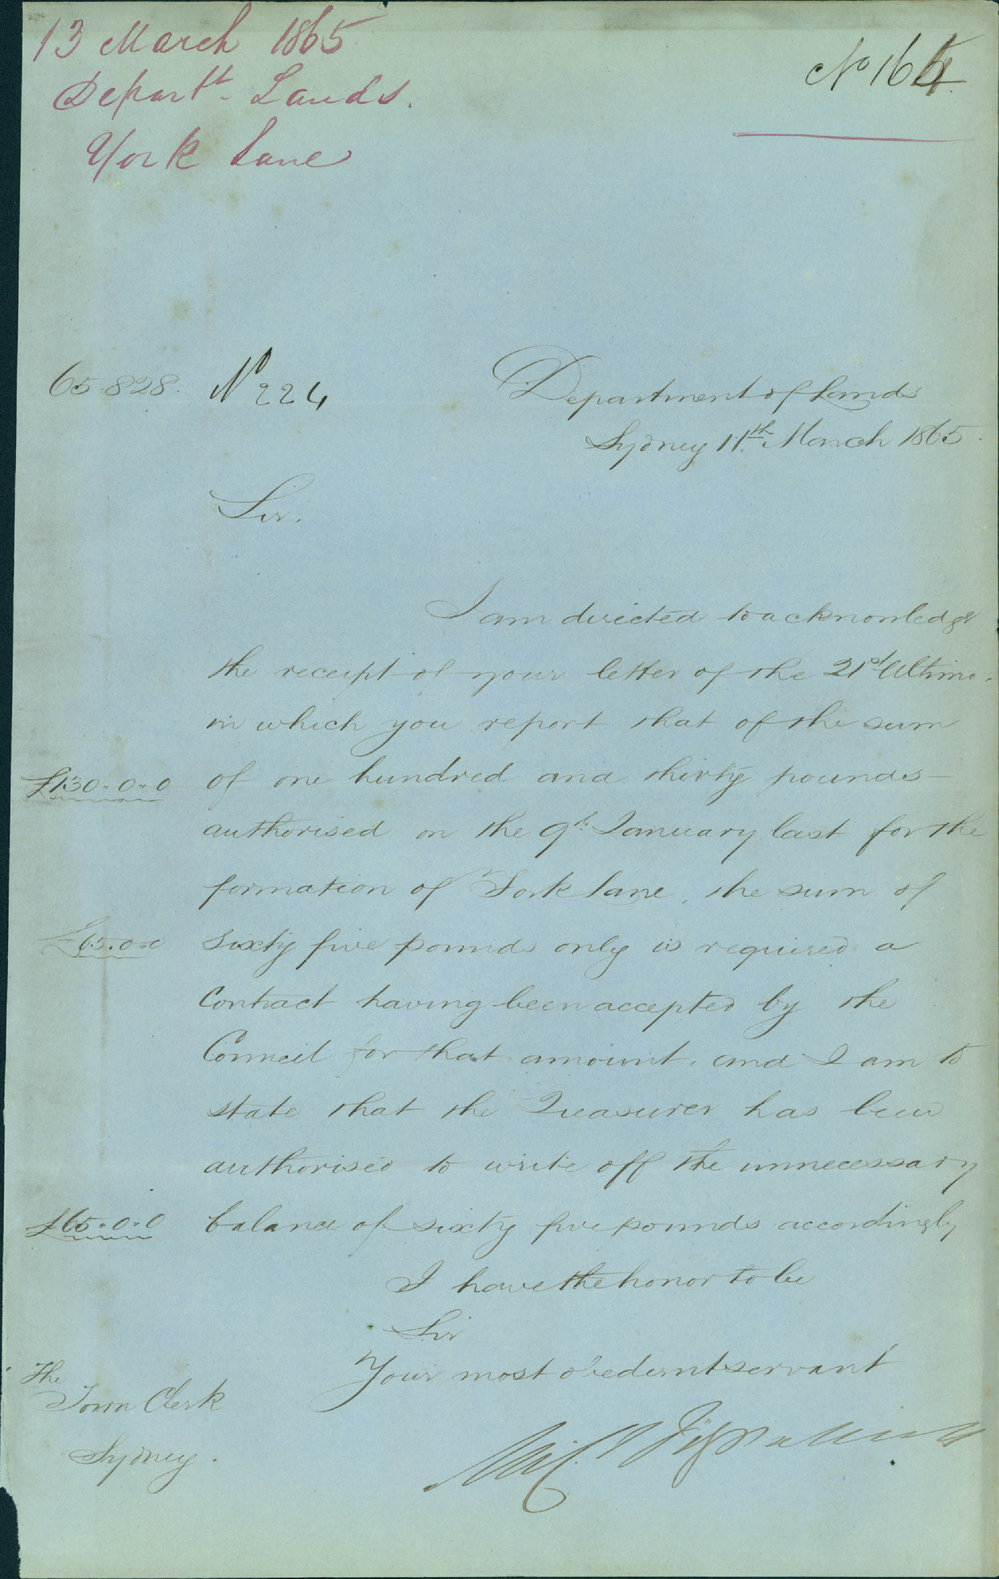 13 March 1865
Depart.t Lands.
York Lane
No 164
65.828. No 224
Department of Lands
Sydney 11th March 1865.
Sir.
I am directed to acknowledge
the receipt of your letter of the 21st Ultimo.
in which you report that of the sum
£130.0.0 of one hundred and thirty pounds
authorised on the 9th January last for the
formation of York lane, the sum of
£65.0.0 sixty five pounds only is required a
Contract having been accepted by the
Council for that amount. and I am to
state that the Treasurer has been
authorised to write off the unnecessary
£65.0.0 balance of sixty five pounds accordingly
I have the honor to be
Sir
Your most obedient servant
Micl Fitzpatrick
The
Town Clerk
Sydney.